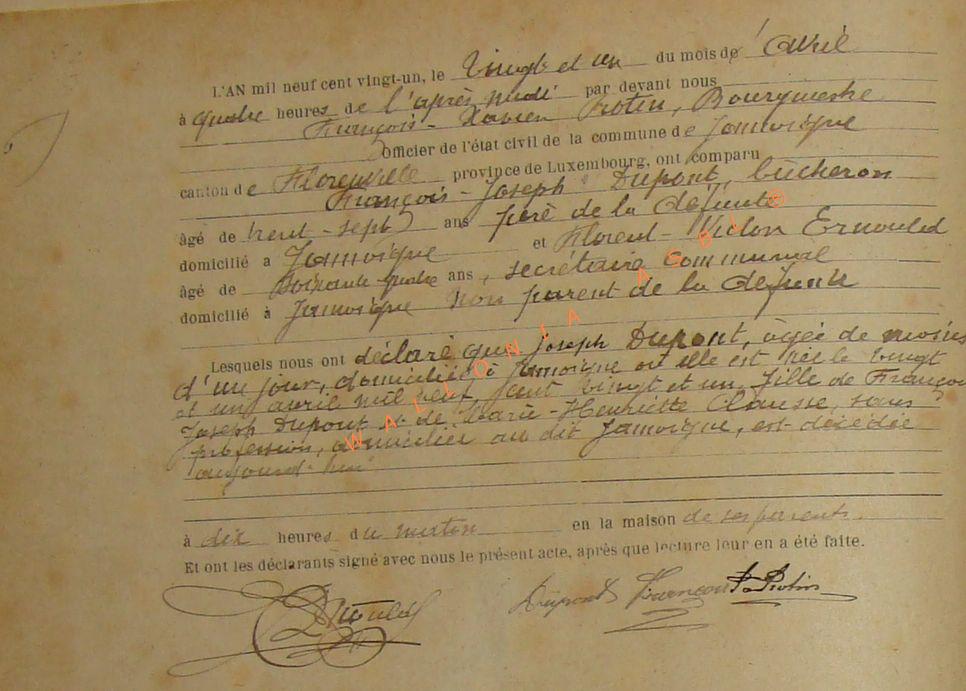 L'AN mil neuf cent vingt-un, le Vingt et un du mois de Avril
à quatre heures de l'après midi par devant nous
François-Xavier Rotin, Bourgmestre
Officier de l'état civil de la commune de Jamoigne
canton de Florenville province de Luxembourg, ont comparu
François-Joseph Dupont, bûcheron
âgé de trent-sept ans père de la défunte
domicilié à Jamoigne et Florent-Victor Ernould
âgé de Soixante quatre ans, secrétaire communal
domicilié à Jamoigne non parent de la défunte
Lesquels nous ont déclaré que Joseph Dupont, âgée de moins
d'un jour, domiciliée à Jamoigne où elle est née le vingt
et un avril mil neuf cent vingt et un fille de François
Joseph Dupont et de Marie-Henriette Clausse, sans
profession, domiciliés au dit Jamoigne, est décédée
aujourd'hui
à dix heures du matin en la maison de ses parents
Et ont les déclarants signé avec nous le présent acte, après que lecture leur en a été faite.
Ernould Dupont François Rotin
WALLONIA ASBL ®